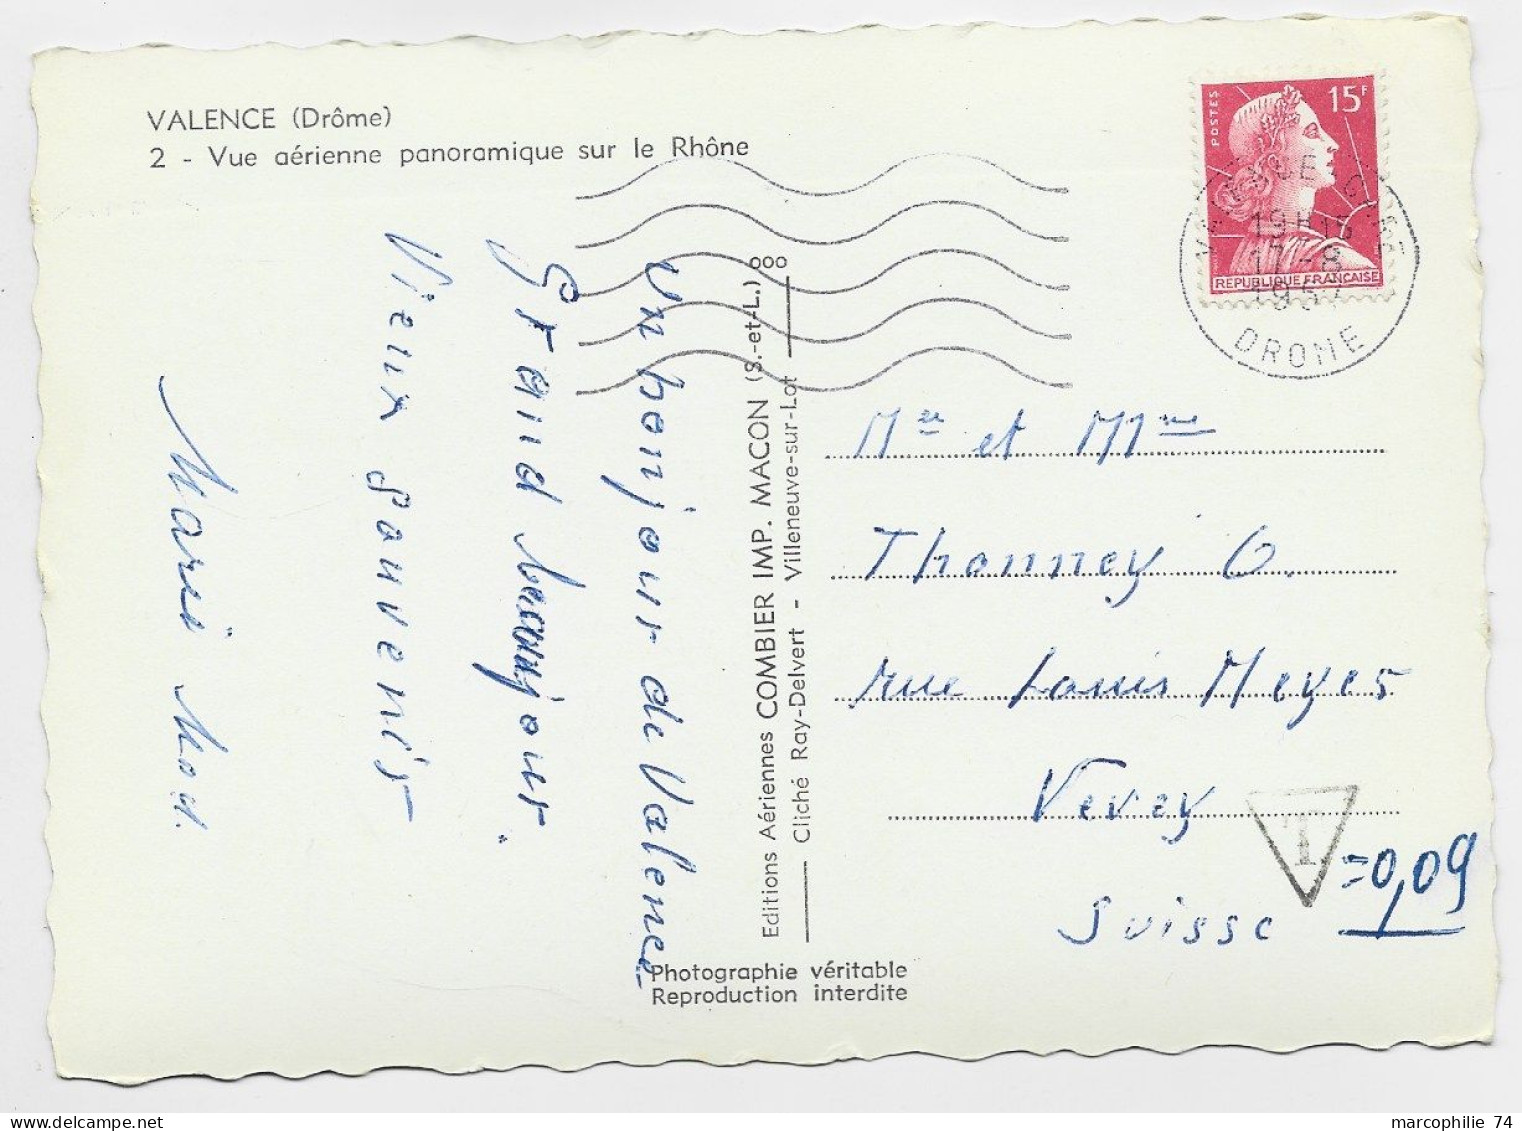 VALENCE (Drôme)
2 - Vue aérienne panoramique sur le Rhône
POSTES
15F
REPUBLIQUE FRANCAISE
19H15
17-8
DROME
Un bonjour de Valence
Grand bonjour
Vieux Souvenir
Marie
Editions Aériennes COMBIER IMP. MACON (S.-et-L.) ooo
Cliché Ray-Delvert - Villeneuve-sur-Lot
Photographie véritable
Reproduction interdite
Mr et Mme
Thonney O.
rue Louis Meyer
Vevey
Suisse
T
=0,09
marcophilie 74